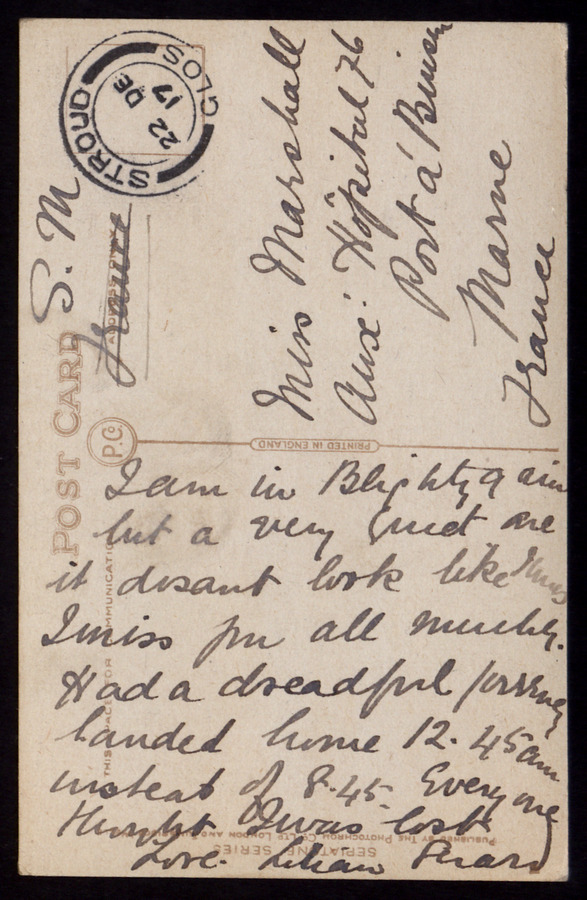 STROUD
GLOS
22 DE
17
S. M
France
POST CARD
ADDRESS ONLY
P.C.
Miss Marshall
Aux: Hôpital 76
Port à Binson
Marne
France
PRINTED IN ENGLAND
THIS SPACE FOR COMMUNICATION
I am in Blighty again
but a very quiet one
it dosant look like Xmas
I miss you all muchly.
Had a dreadful journey
landed home 12.45 am
instead of 8.45. Every one
thought I was lost
Love. Lilian
SEPIATONE SERIES
PUBLISHED BY THE PHOTOCHROM CO LTD LONDON AND